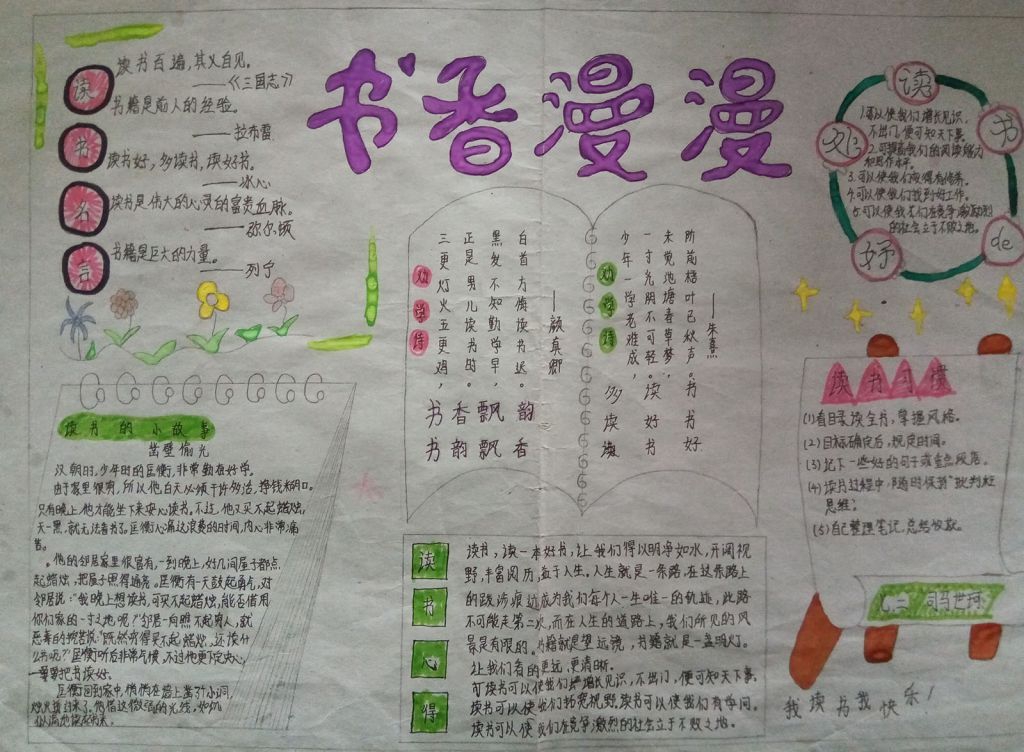 书香漫漫
读书名言
读书百遍,其义自见。
——《三国志》
书籍是前人的经验。
——拉布雷
读书好,多读书,读好书。
——冰心
读书是伟大的心灵的富贵血脉。
——弥尔顿
书籍是巨大的力量。
——列宁
读书的小故事
凿壁偷光
汉朝时,少年时的匡衡,非常勤奋好学。
由于家里很穷,所以他白天必须干许多活,挣钱糊口。
只有晚上,他才能坐下来安心读书。不过,他又买不起蜡烛,
天一黑,就无法看书了。匡衡心痛这浪费的时间,内心非常痛
苦。
他的邻居家里很富有,一到晚上,好几间屋子都点
起蜡烛,把屋子照得通亮。匡衡有一天鼓起勇气,对
邻居说:"我晚上想读书,可买不起蜡烛,能否借用
你们家的一寸之地呢?"邻居一向瞧不起穷人,就
恶毒的挖苦说:"既然穷得买不起蜡烛,还读什
么书呢?"匡衡听后非常气愤,不过他更下定决心,
一定要把书读好。
匡衡回到家中,悄悄在墙上凿了个小洞,
烛光
他借这微弱的光线,如饥
似渴地读起书来。
劝学诗
三更灯火五更鸡,
正是男儿读书时。
黑发不知勤学早,
白首方悔读书迟。
——颜真卿
书香飘韵
书韵飘香
劝学诗
少年一学老难成,
一寸光阴不可轻。
未觉池塘春草梦,
阶前梧叶已秋声。
——朱熹
多读书
读好书
读书好
读书心得
读书,读一本好书,让我们得以明净如水,开阔视
野,丰富阅历,益于人生。人生就是一条路,在这条路上
的跋涉痕迹成为我们每个人一生唯一的轨迹,此路
不可能走第二次,而在人生的道路上,我们所见的风
景是有限的。书籍就是望远镜,书籍就是一盏明灯。
让我们看的更远,更清晰。
读书可以使我们增长见识,不出门,便可知天下事。
读书可以使我们拓宽视野,读书可以使我们有学问。
读书可以使我们在竞争激烈的社会立于不败之地。
读书de好处
1.可以使我们增长见识,
不出门,便可知天下事。
2.可提高我们的阅读能力
和写作水平。
3.可以使我们变得有修养。
4.可以使我们找到好工作。
5.可以使我们在竞争激烈
的社会立于不败之地。
读书习惯
(1)看目录读全书,掌握风格。
(2)目标确定后,规定时间。
(3)记下一些好的句子或重点段落。
(4)读书过程中,随时保持"批判性
思维"
(5)自己整理笔记,总结收获。
七二 司马世珂
我读书我快乐!